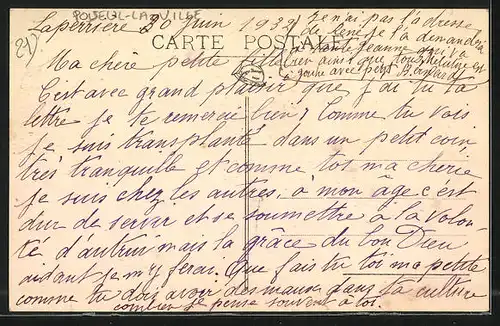 POISEUL-LA-VILLE
Laperrière 3 Juin 1932
CARTE POSTALE
Je n'ai pas l'adresse
de René je la demanderai
à tante Jeanne qui va
bien ainsi que
avec
215
Ma chère petite fille
C'est avec grand plaisir que j'ai lu ta
lettre je te remercie bien. Comme tu vois
je suis transplanté dans un petit coin
très tranquille et comme toi ma chérie
je suis chez les autres, à mon âge c'est
dur de servir et se soumettre à la volon-
té d'autrui mais la grâce du bon Dieu
aidant je m'y ferai. Que fais tu toi ma petite
comme tu dois avoir des maux dans ta culture
combien je pense souvent à toi.